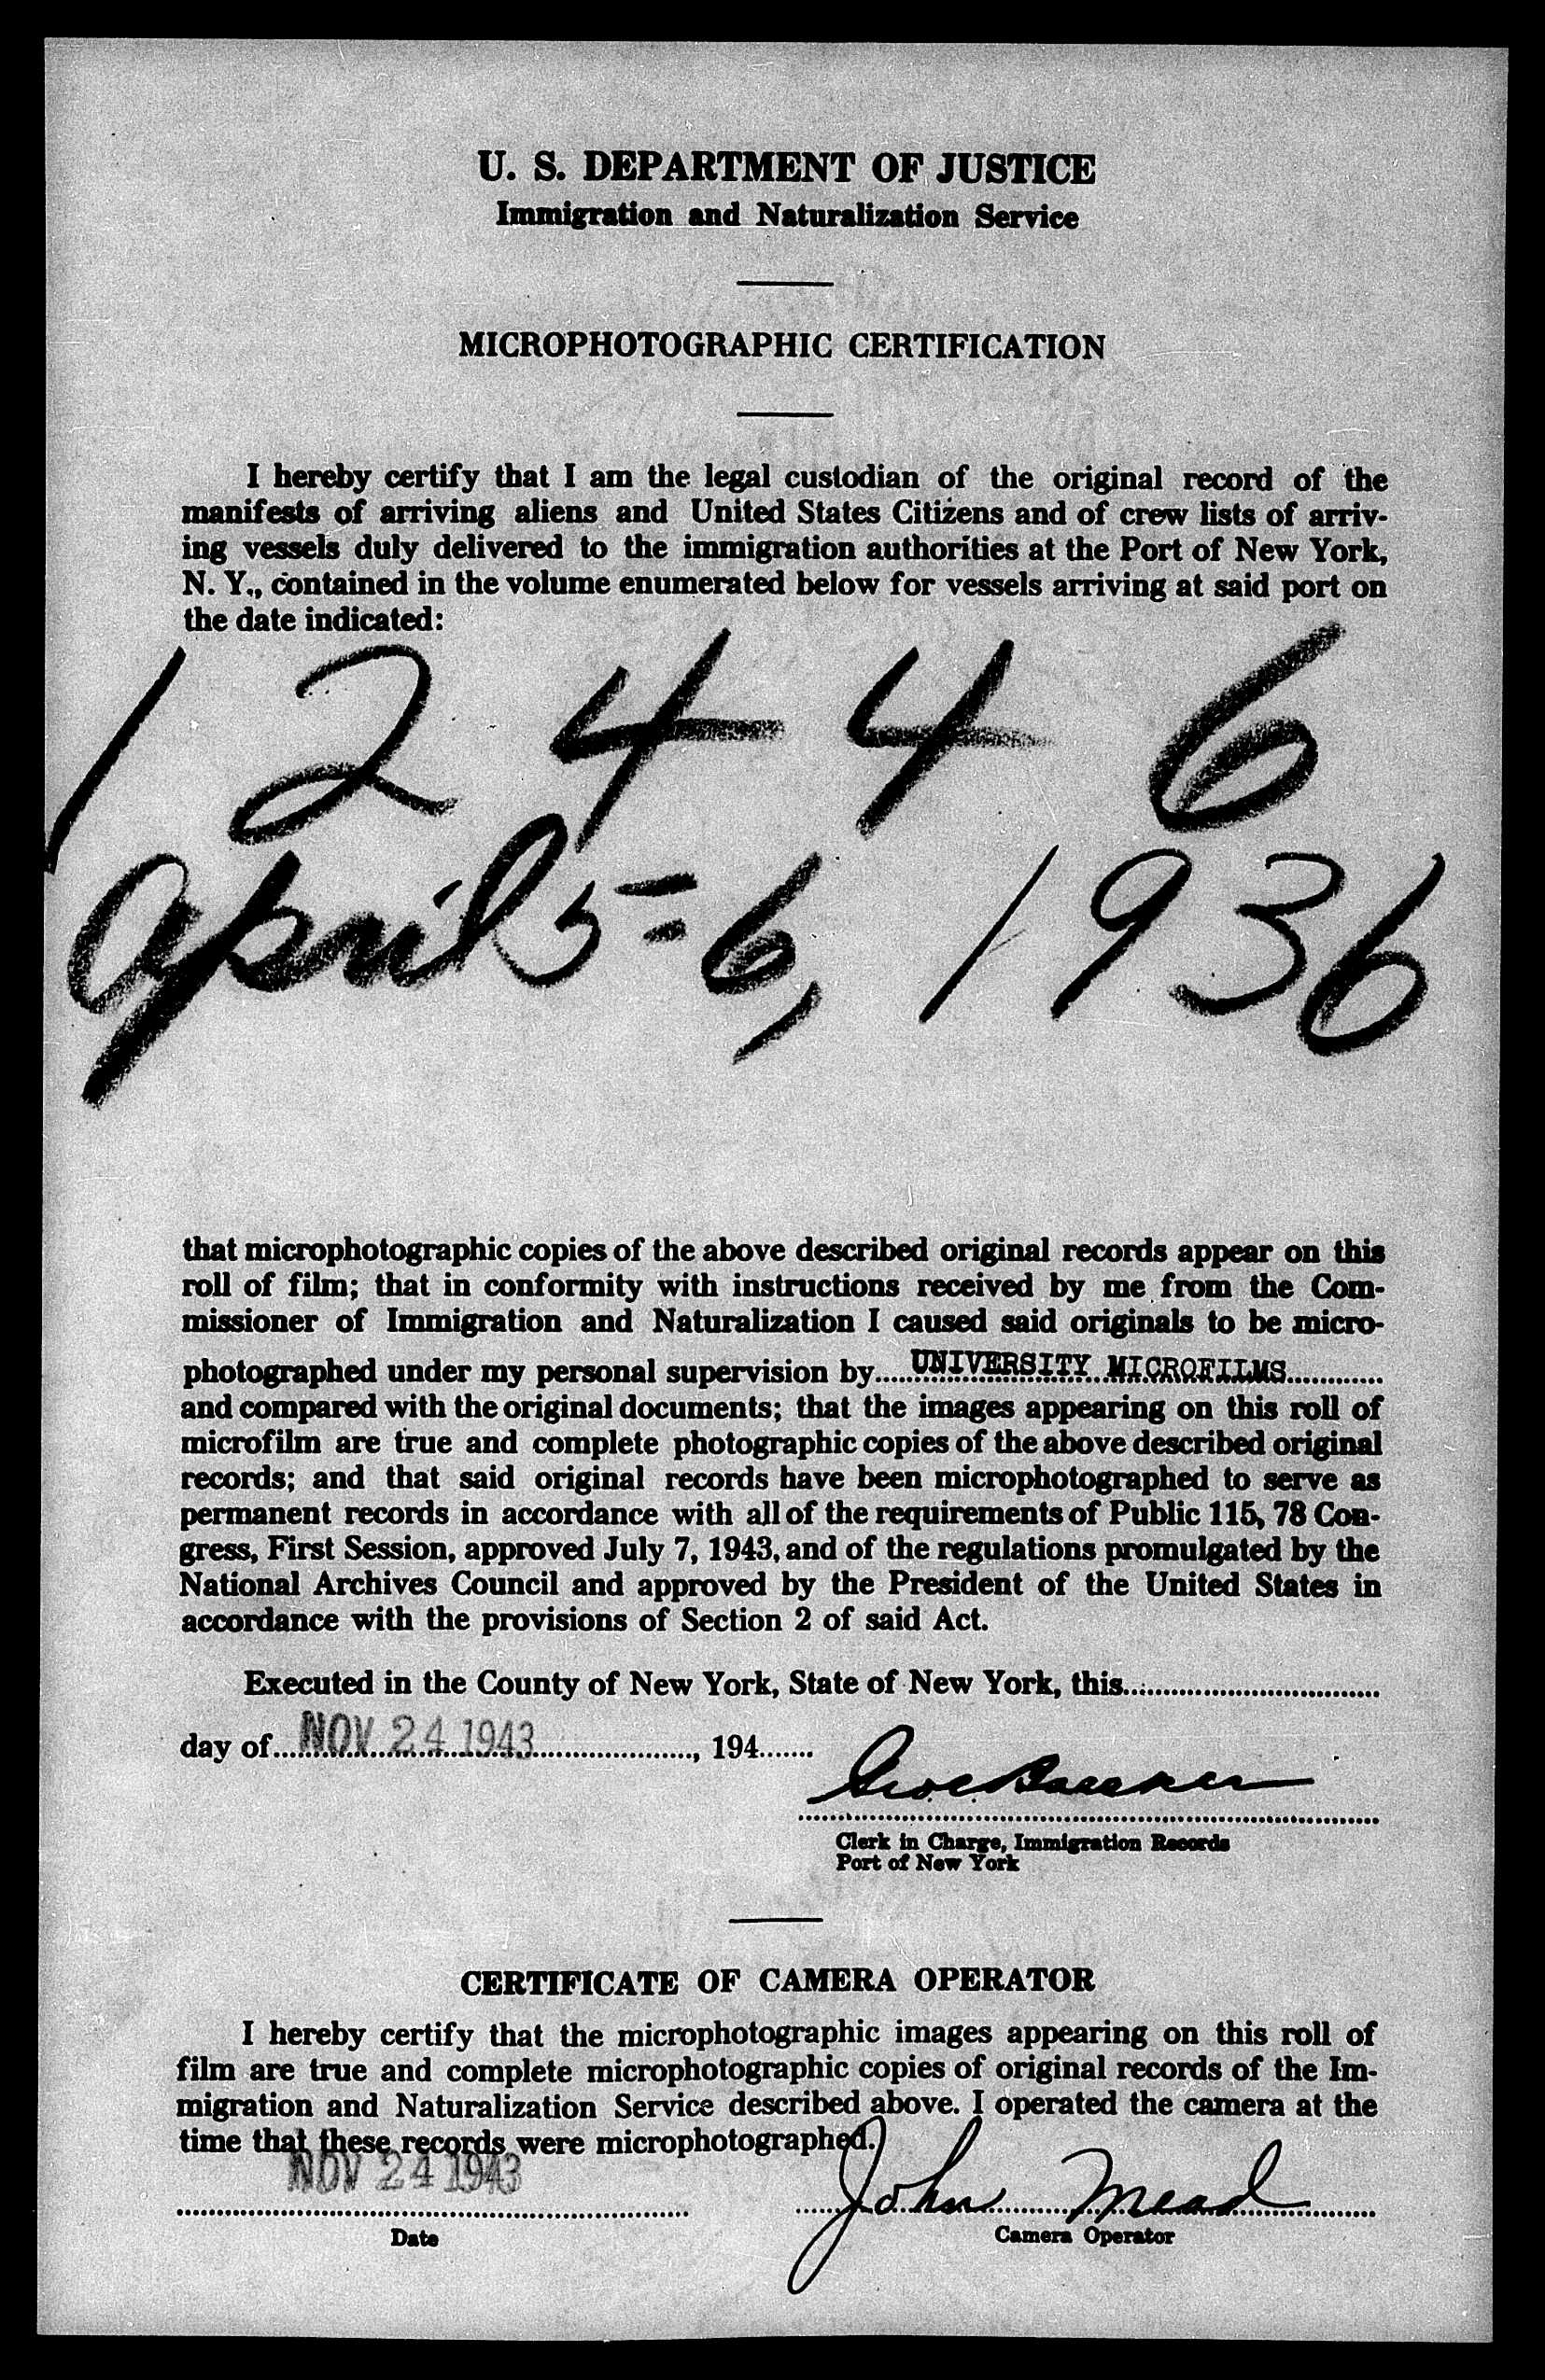 U. S. DEPARTMENT OF JUSTICE
Immigration and Naturalization Service
MICROPHOTOGRAPHIC CERTIFICATION
I hereby certify that I am the legal custodian of the original record of the
manifests of arriving aliens and United States Citizens and of crew lists of arriv-
ing vessels duly delivered to the immigration authorities at the Port of New York,
N. Y., contained in the volume enumerated below for vessels arriving at said port on
the date indicated:
1 2 4 4 6
April 5=6, 1936
that microphotographic copies of the above described original records appear on this
roll of film; that in conformity with instructions received by me from the Com-
missioner of Immigration and Naturalization I caused said originals to be micro-
photographed under my personal supervision by UNIVERSITY MICROFILMS
and compared with the original documents; that the images appearing on this roll of
microfilm are true and complete photographic copies of the above described original
records; and that said original records have been microphotographed to serve as
permanent records in accordance with all of the requirements of Public 115, 78 Con-
gress, First Session, approved July 7, 1943, and of the regulations promulgated by the
National Archives Council and approved by the President of the United States in
accordance with the provisions of Section 2 of said Act.
Executed in the County of New York, State of New York, this
day of NOV 24 1943, 194
Clerk in Charge, Immigration Records
Port of New York
CERTIFICATE OF CAMERA OPERATOR
I hereby certify that the microphotographic images appearing on this roll of
film are true and complete microphotographic copies of original records of the Im-
migration and Naturalization Service described above. I operated the camera at the
time that these records were microphotographed.
NOV 24 1943 John Mead
Date Camera Operator